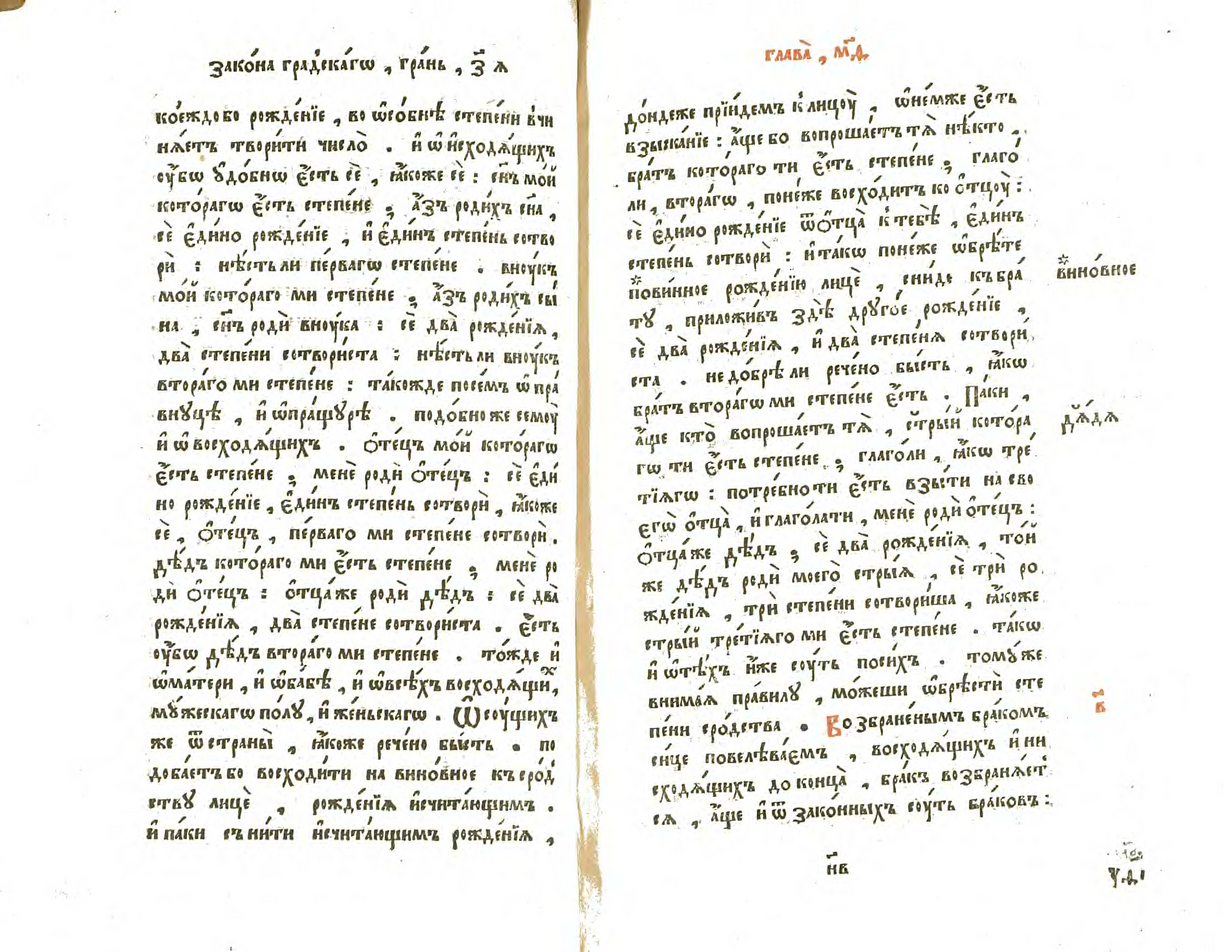 Зако́на гра́дскагѡ , гра́нь , з҃ ѧ
кое́ждо бо рожде́нїе , во ѿсо́бнѣ степе́ни вчи
нѧ́етъ твори́ти число̀ . и҆ ѡ҆ и҆сходѧ́щихъ
оу҆́бѡ ᲂу҆до́бнѡ є҆́сть сѐ , ꙗ҆́коже сѐ : сн҃ъ мо́й
кото́рагѡ є҆́сть степе́не ; а҆́зъ роди́хъ сн҃а ,
сѐ є҆ди́но рожде́нїе , и҆ є҆ди́нъ степе́нь сотво
рѝ : нѣ́сть ли пе́рвагѡ степе́не . вноу́къ
мо́й кото́раго ми степе́не ; а҆́зъ роди́хъ сы́
на , сн҃ъ родѝ вноу́ка : сѐ два̀ рожде́нїѧ ,
два̀ степе́ни сотвори́ста : нѣ́сть ли вноу́къ
втора́го ми степе́не : та́кожде посе́мъ ѡ҆ пра́
внуцѣ , и҆ ѡ҆ пра́щурѣ . подо́бно же семоу̀
и҆ ѡ҆ восходѧ́щихъ . ѻ҆те́цъ мо́й кото́рагѡ
є҆́сть степе́не ; менѐ родѝ ѻ҆те́цъ : сѐ є҆ди́
но рожде́нїе , є҆ди́нъ степе́нь сотворѝ , ꙗ҆́коже
сѐ , ѻ҆те́цъ , пе́рваго ми степе́не сотворѝ .
дѣ́дъ кото́раго ми є҆́сть степе́не ; менѐ ро
дѝ ѻ҆те́цъ : ѻ҆тца́ же родѝ дѣ́дъ : сѐ два̀
рожде́нїѧ , два̀ степе́не сотвори́ста . є҆́сть
оу҆́бѡ дѣ́дъ втора́го ми степе́не . то́жде и҆
ѡ҆ ма́тери , и҆ ѡ҆ ба́бѣ , и҆ ѡ҆ всѣ́хъ восходѧ́щиⷯ ,
мꙋ́жескагѡ по́лꙋ , и҆ же́ньскагѡ . Ѿ соу́щихъ
же ѿ страны̀ , ꙗ҆́коже рече́но бы́сть . по
доба́етъ бо восходи́ти на вино́вное къ сро́д
ствꙋ лицѐ , рожде́нїѧ и҆счита́ющимъ .
и҆ па́ки съни́ти и҆счита́ющимъ рожде́нїѧ ,
глава̀ , м҃д
до́ндеже прїи́демъ к лицоу̀ , ѡ҆ не́мже є҆́сть
взыска́нїе : а҆́ще бо вопроша́етъ тѧ̀ нѣ́кто ,
бра́тъ кото́раго ти є҆́сть степе́не ; глаго́
ли , второ́гѡ , поне́же восхо́дитъ ко ѻ҆тцоу̀ :
сѐ є҆ди́но рожде́нїе ѿ ѻ҆тца̀ к тебѣ̀ , є҆ди́нъ
степе́нь сотворѝ : и҆ та́кѡ поне́же ѡ҆брѣ́те
*пови́нное рожде́нїю лицѐ , сни́де къ бра́
тꙋ , приложи́въ здѣ̀ дрꙋго́е рожде́нїе ,
сѐ два̀ рожде́нїѧ , и҆ два̀ степе́нѧ сотвори́
ста . не до́брѣ ли рече́но бы́сть , ꙗ҆́кѡ
бра́тъ втора́гѡ ми степе́не є҆́сть . Па́ки ,
а҆́ще кто̀ вопроша́етъ тѧ̀ , стры́й кото́ра
гѡ ти є҆́сть степе́не ; глаго́ли , ꙗ҆́кѡ тре́
тїѧгѡ : потре́бно ти є҆́сть взы́ти на сво
егѡ̀ ѻ҆тца̀ , и҆ глаго́лати , менѐ родѝ ѻ҆те́цъ :
ѻ҆тца́ же дѣ́дъ ; сѐ два̀ рожде́нїѧ , то́й
же дѣ́дъ родѝ моего̀ стры́ѧ , сѐ трѝ ро
жде́нїѧ , трѝ степе́ни сотвори́ша , ꙗ҆́коже
стры́й тре́тїѧго ми є҆́сть степе́не . та́кѡ
и҆ ѡ҆ тѣ́хъ и҆́же соу́ть по си́хъ . томꙋ́же
внима́ѧ пра́вилꙋ , мо́жеши ѡ҆брѣстѝ сте
пе́ни сро́дства . Возбране́нымъ бра́комъ
си́це повелѣва́емъ , восходѧ́щихъ и҆ ни
сходѧ́щихъ до конца̀ , бра́къ возбранѧ́ет
сѧ , а҆́ще и҆ ѿ зако́нныхъ соу́ть бра́ковъ :
*вино́вное
дѧ́дѧ
в҃
н҃в